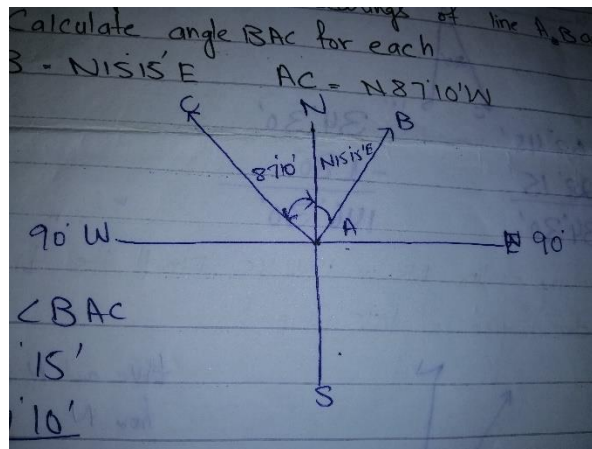 of line A,B
Calculate angle BAC for each
B = N15°15'E AC = N87°10'W
C N B
87°10' N15°15'E
A
90° W E 90°
<BAC
15'
10'
S